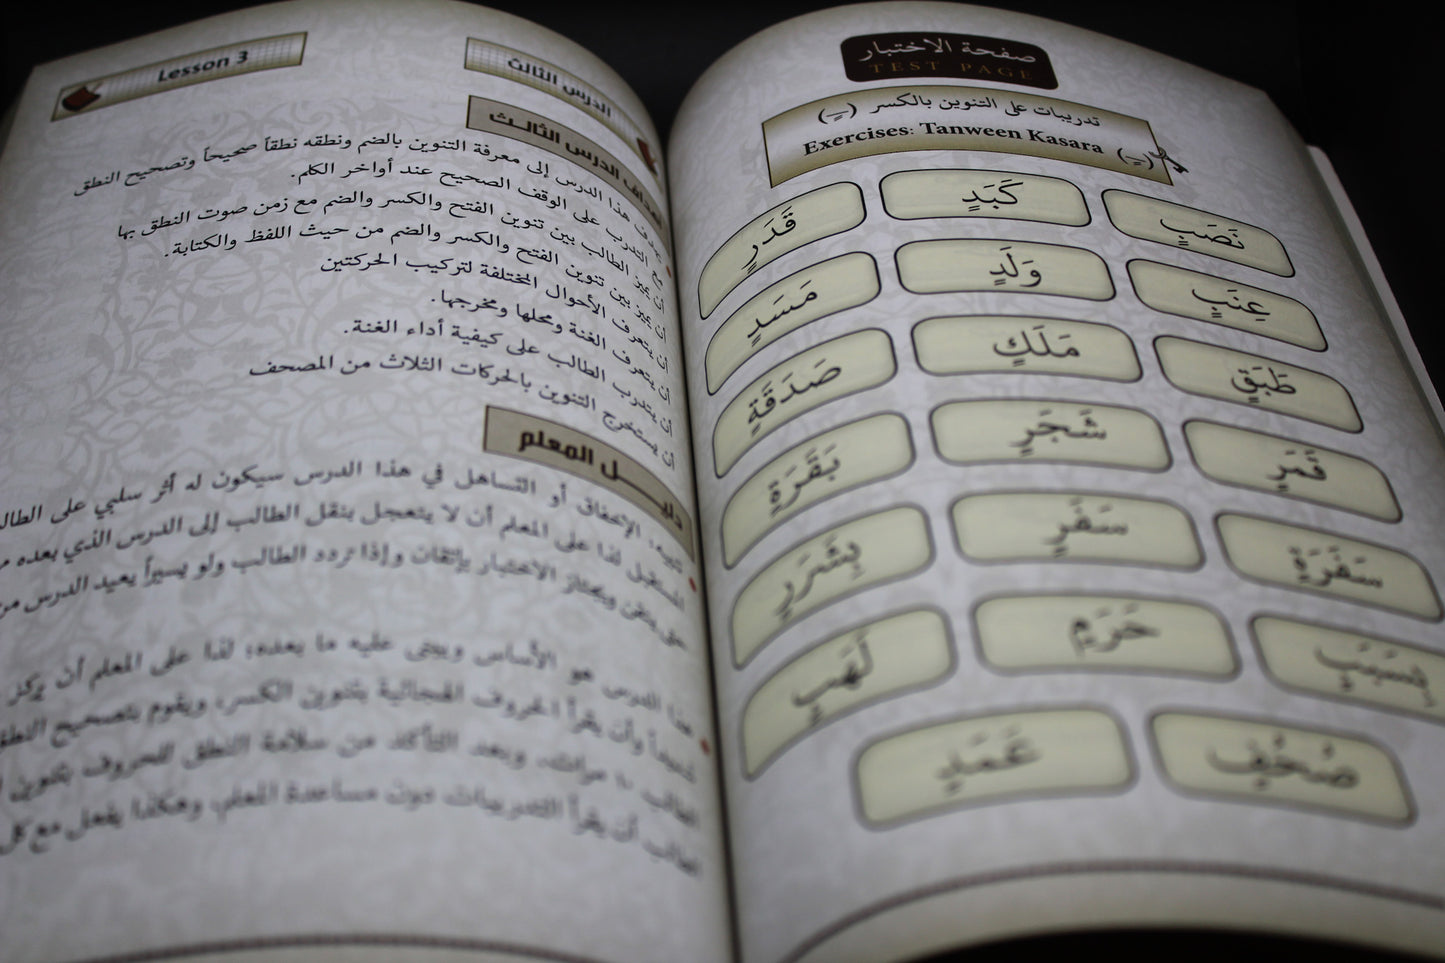 Lesson 3
الدرس الثالث
أهداف الدرس الثالث
هذا الدرس إلى معرفة التنوين بالضم ونطقه نطقاً صحيحاً وتصحيح النطق
مع التدرب على الوقف الصحيح عند أواخر الكلم.
أن يميز الطالب بين تنوين الفتح والكسر والضم مع زمن صوت النطق بها
أن يميز بين تنوين الفتح والكسر والضم من حيث اللفظ والكتابة.
أن يتعرف الأحوال المختلفة لتركيب الحركتين
أن يتعرف الغنة ومحلها ومخرجها.
أن يتدرب الطالب على كيفية أداء الغنة.
أن يستخرج التنوين بالحركات الثلاث من المصحف
دليل المعلم
تنبيه: الإخفاق أو التساهل في هذا الدرس سيكون له أثر سلبي على
المستقبل لذا على المعلم أن لا يتعجل بنقل الطالب إلى الدرس الذي بعده
حتى يتقن ويجتاز الاختبار بإتقان وإذا تردد الطالب ولو يسيراً يعيد الدرس من
هذا الدرس هو الأساس ويبنى عليه ما بعده؛ لذا على المعلم أن يركز
وأن يقرأ الحروف الهجائية بتنوين الكسر، ويقوم بتصحيح النطق
مرات، وبعد التأكد من سلامة النطق للحروف بتنوين
الطالب أن يقرأ التدريبات دون مساعدة المعلم، وهكذا يفعل مع كل
صفحة الاختبار
TEST PAGE
تدريبات على التنوين بالكسر (ـٍـ)
Exercises: Tanween Kasara (ـٍـ)
نَصَبٍ كَبَدٍ قَدَرٍ
عِنَبٍ وَلَدٍ مَسَدٍ
طَبَقٍ مَلَكٍ صَدَقَةٍ
قَمَرٍ شَجَرٍ بَقَرَةٍ
سَفَرَةٍ سَفَرٍ بِشَرَرٍ
بِسَبَبٍ حَرَمٍ لَهَبٍ
صُحُفٍ عَمَدٍ